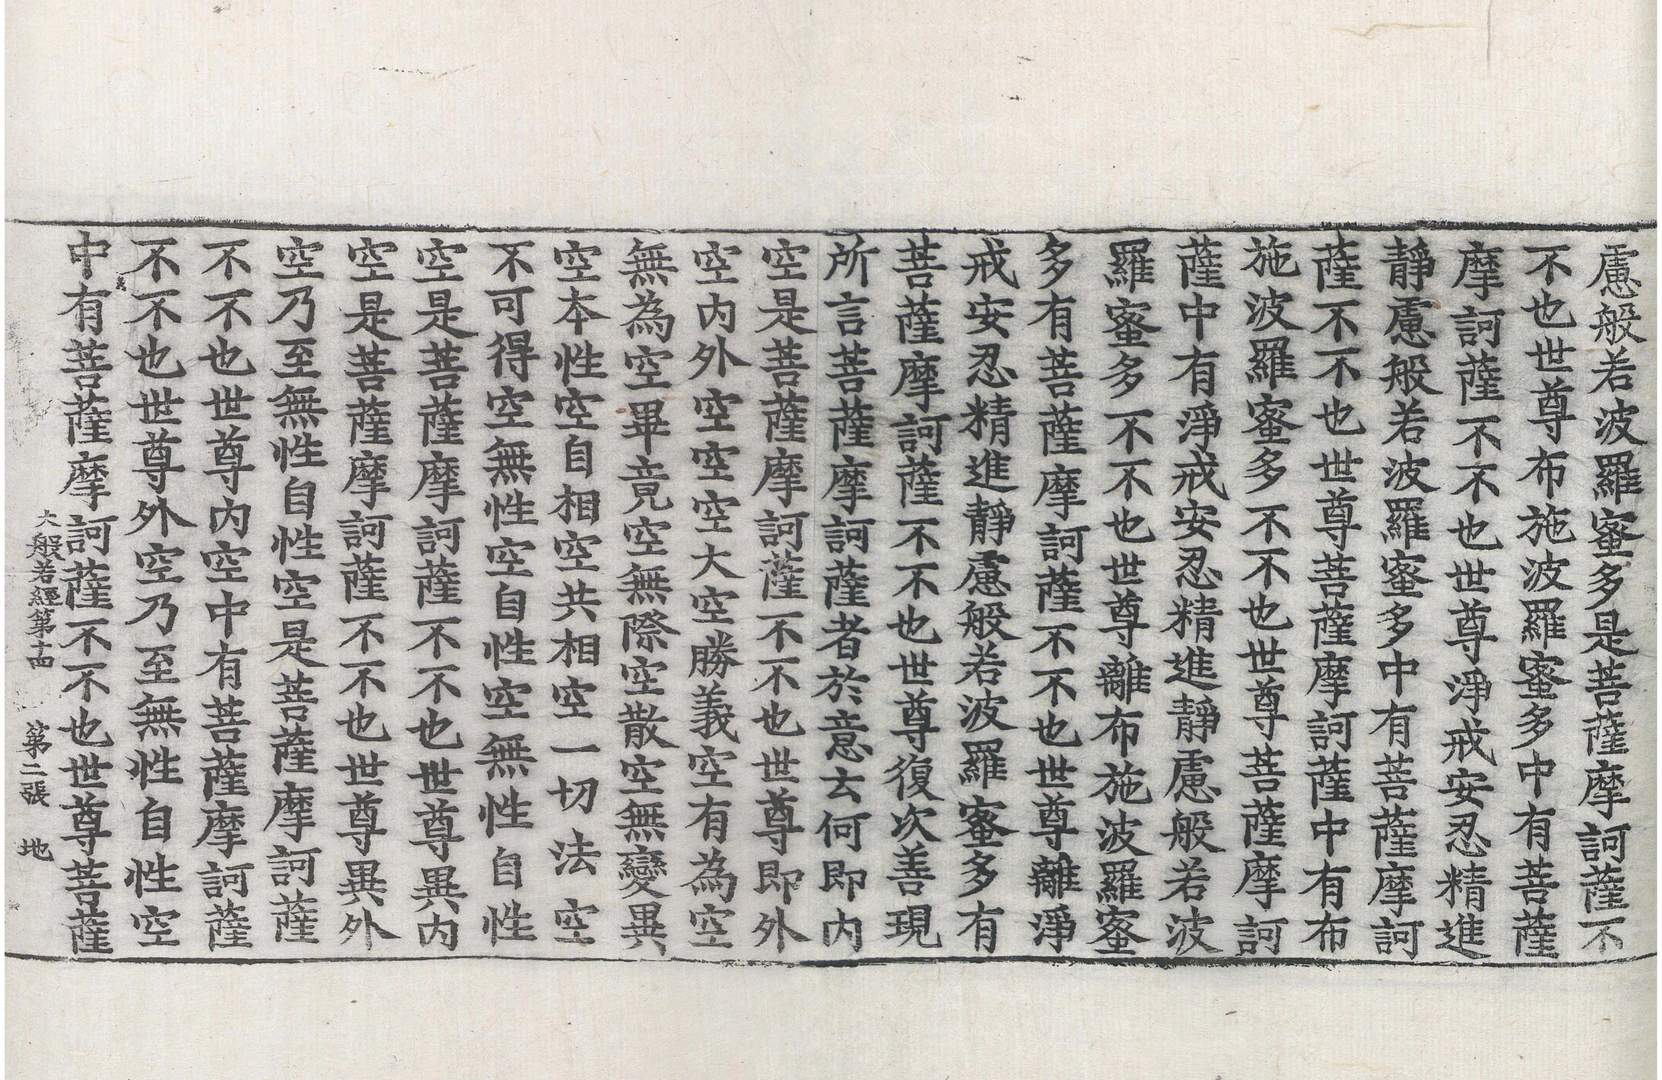 慮般若波羅蜜多是菩薩摩訶薩不
不也世尊布施波羅蜜多中有菩薩
摩訶薩不不也世尊淨戒安忍精進
靜慮般若波羅蜜多中有菩薩摩訶
薩不不也世尊菩薩摩訶薩中有布
施波羅蜜多不不也世尊菩薩摩訶
薩中有淨戒安忍精進靜慮般若波
羅蜜多不不也世尊離布施波羅蜜
多有菩薩摩訶薩不不也世尊離淨
戒安忍精進靜慮般若波羅蜜多有
菩薩摩訶薩不不也世尊復次善現
所言菩薩摩訶薩者於意云何即內
空是菩薩摩訶薩不不也世尊即外
空內外空空空大空勝義空有為空
無為空畢竟空無際空散空無變異
空本性空自相空共相空一切法空
不可得空無性空自性空無性自性
空是菩薩摩訶薩不不也世尊異內
空是菩薩摩訶薩不不也世尊異外
空乃至無性自性空是菩薩摩訶薩
不不也世尊內空中有菩薩摩訶薩
不不也世尊外空乃至無性自性空
中有菩薩摩訶薩不不也世尊菩薩
大般若經第十四 第二張 地